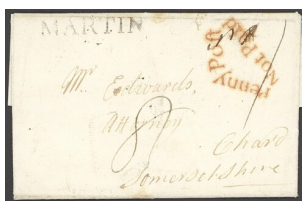 MARTIN
Penny Post
Not Paid
Mr Edwards,
Attorney
8
Chard
Somersetshire